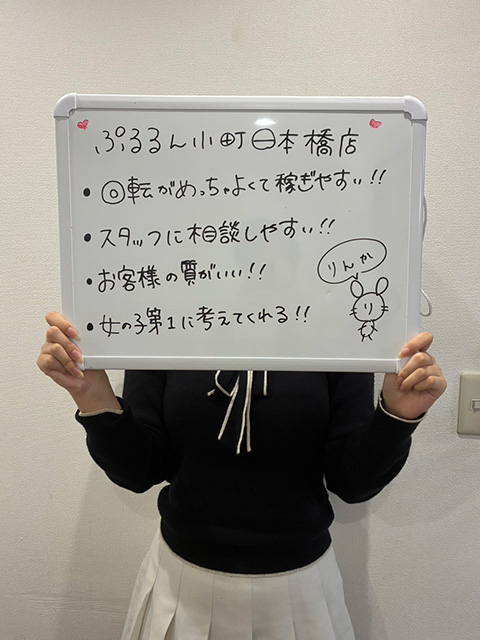 ぷるるん小町日本橋店
・回転がめっちゃよくて稼ぎやすい!!
・スタッフに相談しやすい!!
・お客様の質がいい!!
・女の子第1に考えてくれる!!
りんか
り